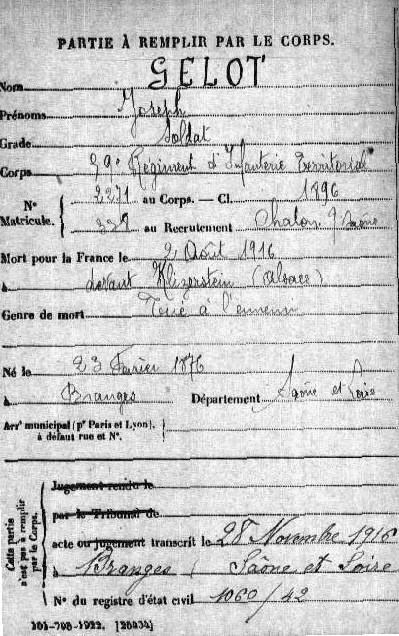 PARTIE À REMPLIR PAR LE CORPS.
Nom GELOT
Prénoms Joseph
Grade Soldat
Corps 59e Régiment d'Infanterie Territorial
N° Matricule. { 2271 au Corps. — Cl. 1896
339 au Recrutement Chalon s/ Saône
Mort pour la France le 2 Août 1916
à devant (Alsace)
Genre de mort Tué à l'ennemi
Né le 23 Février 1876
à Branges Département Saône et Loire
Arrt municipal (pr Paris et Lyon), à défaut rue et N°.
Cette partie n'est pas à remplir par le Corps.
Jugement rendu le
par le Tribunal de
acte ou jugement transcrit le 28 Novembre 1916
à Branges (Saône et Loire
N° du registre d'état civil 1060/42
101-708-1922. [26434]